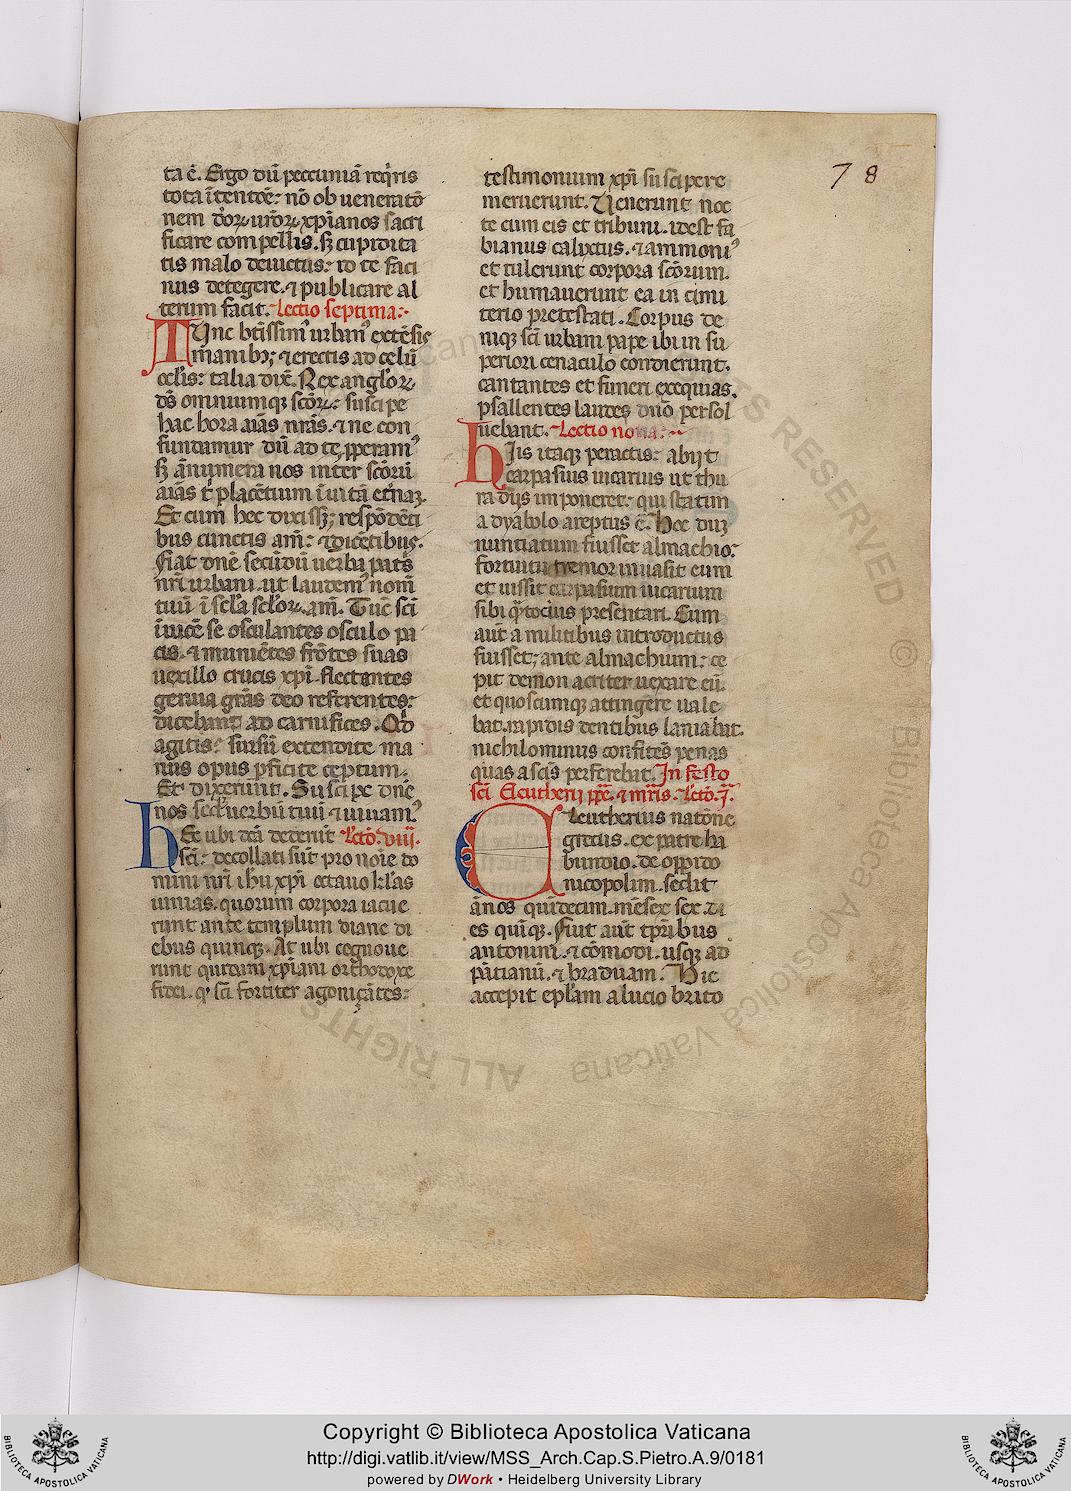 78
ta ē. Ergo dū peccuniā req̄ris
tota ītentōe: nō ob ueneratō
nem dōrꝝ urōrꝝ xp̄ianos sacri
ficare compellis. sꝫ cupidita
tis malo deuictus: id te faci
nus detegere. ⁊ publicare al
terum facit. Lectio septima:
Tūnc btissim̄ urban᷒ extēsis
manibꝫ; ⁊ erectis ad celū
oclis: talia dix̄. Rex anglorꝝ
ds̄ omniumqꝫ scōrꝝ: suscipe
hac hora aīas nr̄as. ⁊ ne con
fundamur dū ad te ꝓperam᷒
sꝫ ānumera nos inter scōrū
aīas ī placētium ī uitā et̄naꝫ.
Et cum hec dixissꝫ; respōdēti
bus cunctis am̄: ⁊ dicētibus.
fiat dn̄e secūdū uerba patis
nr̄i urbani. ut laudem᷒ nom̄
tuū ī scl̄a scl̄orꝝ. am̄. Tūc sci
īuicē se osculantes osculo pa
cis. ⁊ muniētes frōtes suas
uexillo crucis xp̄i. flectantes
genua grās deo referentes:
dicebant ad carnifices. Qd̄
agitis: sursū extendite ma
nus opus ꝑficite ceptum.
Et dixerunt. Suscipe dn̄e
nos sed̄ uerbū tuū ⁊ uiuam᷒
Et ubi dēā decerūt Lectō. viij.
sc̄i: decollati sūt pro noīe do
mini nr̄i ihū xp̄i octauo kl̄as
iunias. quorum corpora iacue
runt ante templum diane di
ebus quinqꝫ. At ubi cognoue
runt quidam xp̄iani orthodoxe
fidei. q̄ sc̄i fortiter agoniçātes:
testimonium xp̄i suscipere
meruerunt. Uenerunt noc
te cum eis et tribuni. idest fa
bianus calixtus. ⁊ ammoni᷒
et tulerunt corpora scōrum.
et humauerunt ea in cimi
terio pretestati. Corpus de
niqꝫ sc̄i urbani pape ibi in su
periori cenaculo condierunt.
cantantes et funeri exequias.
psallentes laudes dn̄o persol
uebant. Lectio nona:
Hiis itaqꝫ peractis: abijt
carpasius uicarius ut thu
ra dijs imponeret: qui statim
a dyabolo areptus ē. Hoc duꝫ
nuntiatum fuisset almachio:
fortuitu tremor inuasit eum
et iussit carpasium uicarium
sibi q̄ tocius presentari. Cum
aut̄ a militibus introductus
fuisset; ante almachium: ce
pit demon acriter uexare eū.
et quoscumqꝫ attingere uale
bat. rapidis dentibus laniabat.
nichilominus confitēs penas
quas a sc̄is perferebat. In festo
sc̄i Eeutherij pp̄e. ⁊ mr̄is. Lectō. j.
Eleutherius natōne
grecus. ex patre ha
bundio. de oppido
nicopolim. sedit
ānos quīdecim. mēses sex. di
es quīqꝫ. Fuit aut̄ tp̄ribus
antonini. ⁊ cōmodi. usqꝫ ad
pātianū. ⁊ braduam. Hic
accepit epl̄am a lucio brito
Copyright © Biblioteca Apostolica Vaticana
http://digi.vatlib.it/view/MSS_Arch.Cap.S.Pietro.A.9/0181
powered by DWork • Heidelberg University Library
BIBLIOTECA APOSTOLICA VATICANA
BIBLIOTECA APOSTOLICA VATICANA
ALL RIGHTS RESERVED © Biblioteca Apostolica Vaticana